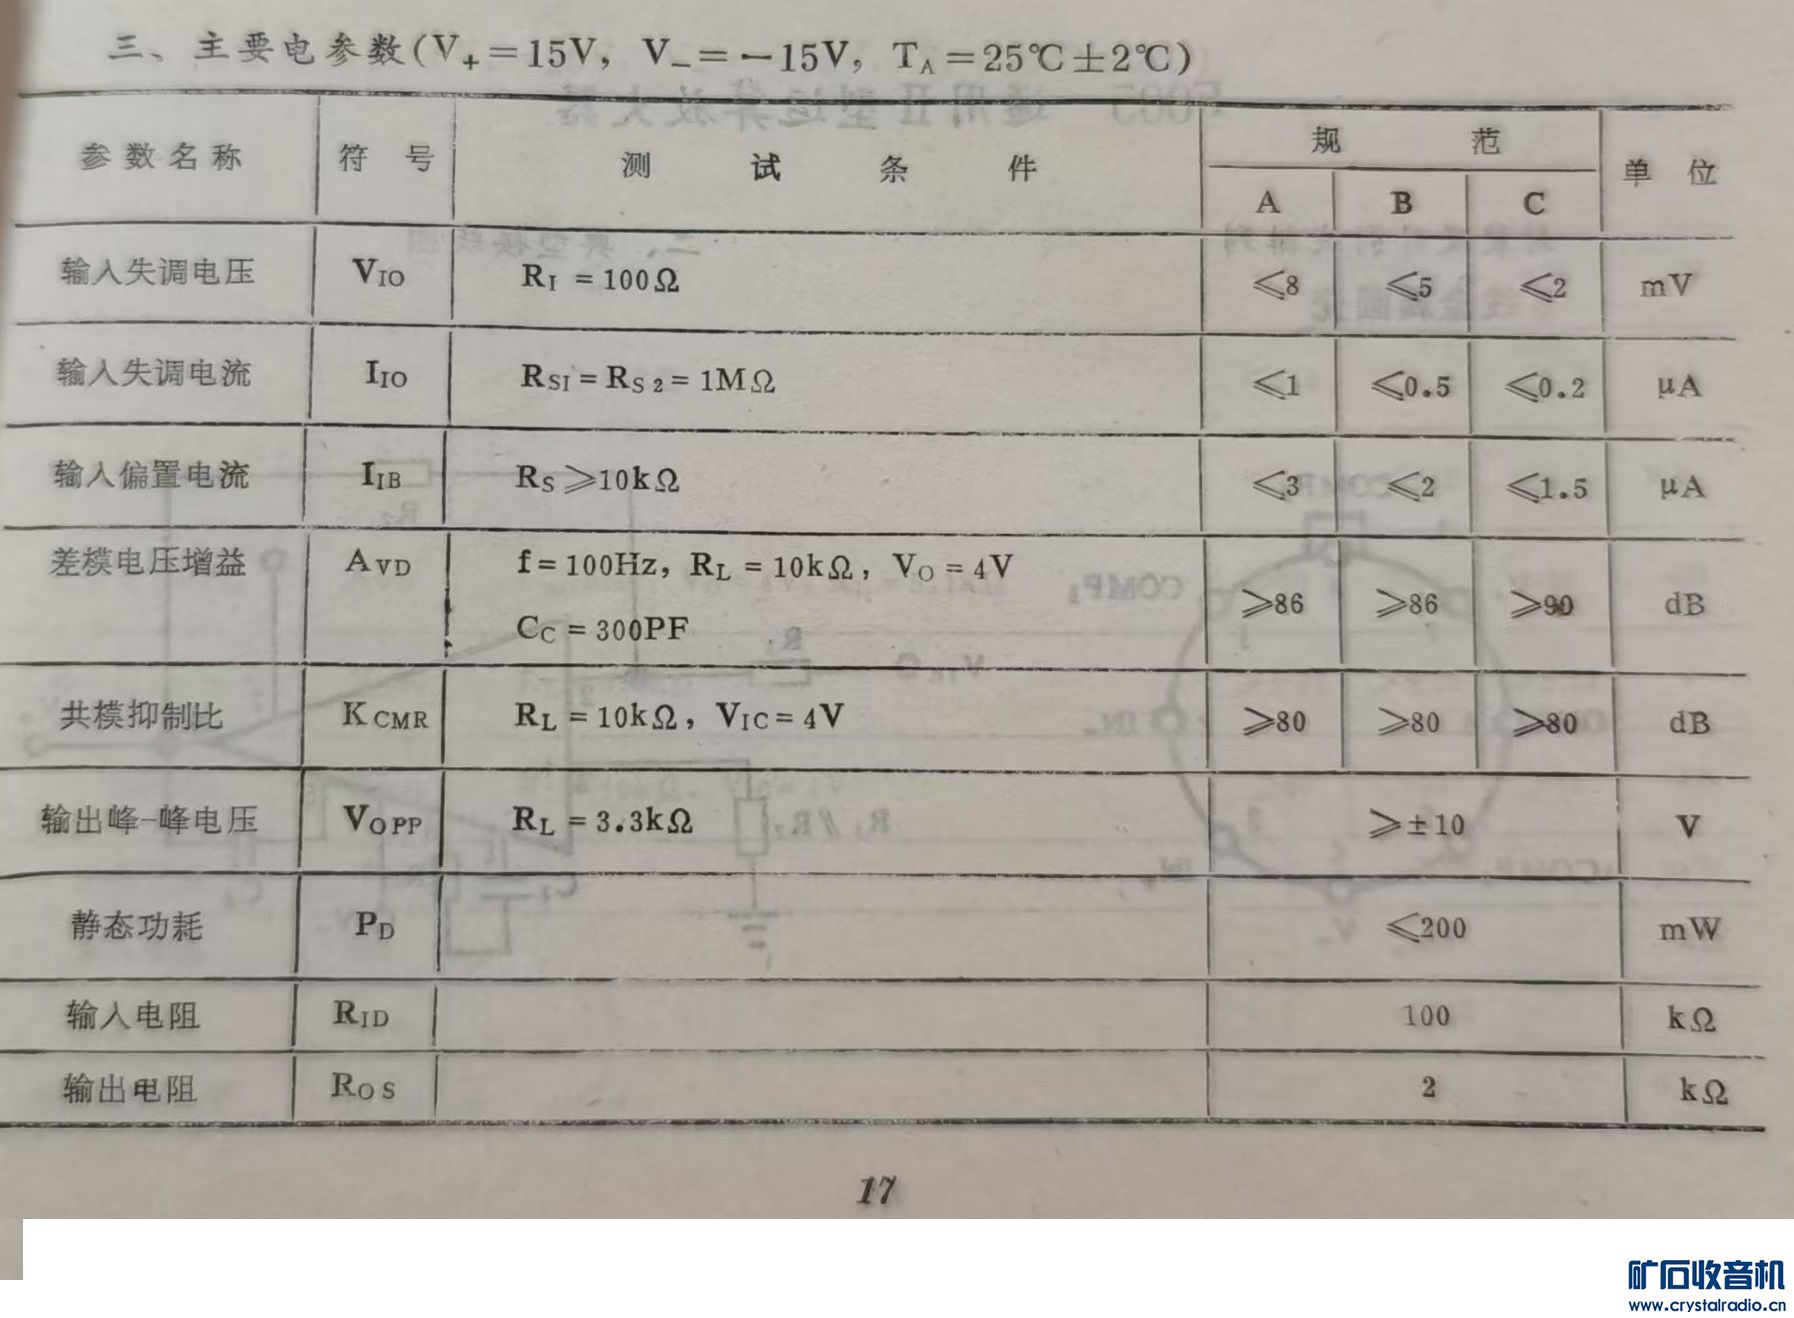 三、主要电参数(V₊=15V, V₋=-15V, T_A=25℃±2℃)
参数名称 符号 测试条件 规范 单位
A B C
输入失调电压 V_IO R_I=100Ω ≤8 ≤5 ≤2 mV
输入失调电流 I_IO R_SI=R_S2=1MΩ ≤1 ≤0.5 ≤0.2 μA
输入偏置电流 I_IB R_S≥10kΩ ≤3 ≤2 ≤1.5 μA
差模电压增益 A_VD f=100Hz, R_L=10kΩ, V_O=4V
C_C=300PF ≥86 ≥86 ≥90 dB
共模抑制比 K_CMR R_L=10kΩ, V_IC=4V ≥80 ≥80 ≥80 dB
输出峰-峰电压 V_OPP R_L=3.3kΩ ≥±10 V
静态功耗 P_D ≤200 mW
输入电阻 R_ID 100 kΩ
输出电阻 R_OS 2 kΩ
17
矿石收音机
www.crystalradio.cn